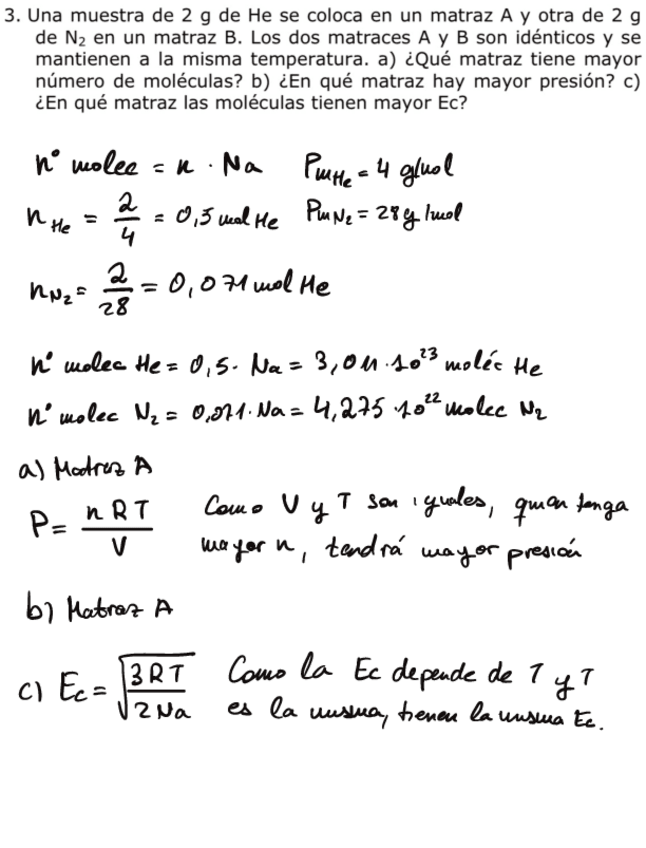 3. Una muestra de 2 g de He se coloca en un matraz A y otra de 2 g
de N₂ en un matraz B. Los dos matraces A y B son idénticos y se
mantienen a la misma temperatura. a) ¿Qué matraz tiene mayor
número de moléculas? b) ¿En qué matraz hay mayor presión? c)
¿En qué matraz las moléculas tienen mayor Ec?
nº molec = n · Na Pm He = 4 g/mol
n He = 2/4 = 0,5 mol He Pm N₂ = 28 g/mol
n N₂ = 2/28 = 0,071 mol He
nº molec He = 0,5 · Na = 3,011 · 10²³ moléc He
nº molec N₂ = 0,071 · Na = 4,275 · 10²² molec N₂
a) Matraz A
P = nRT/V Como V y T son iguales, quien tenga
mayor n, tendrá mayor presión
b) Matraz A
c) Ec = √(3RT/2Na) Como la Ec depende de T y T
es la misma, tienen la misma Ec.